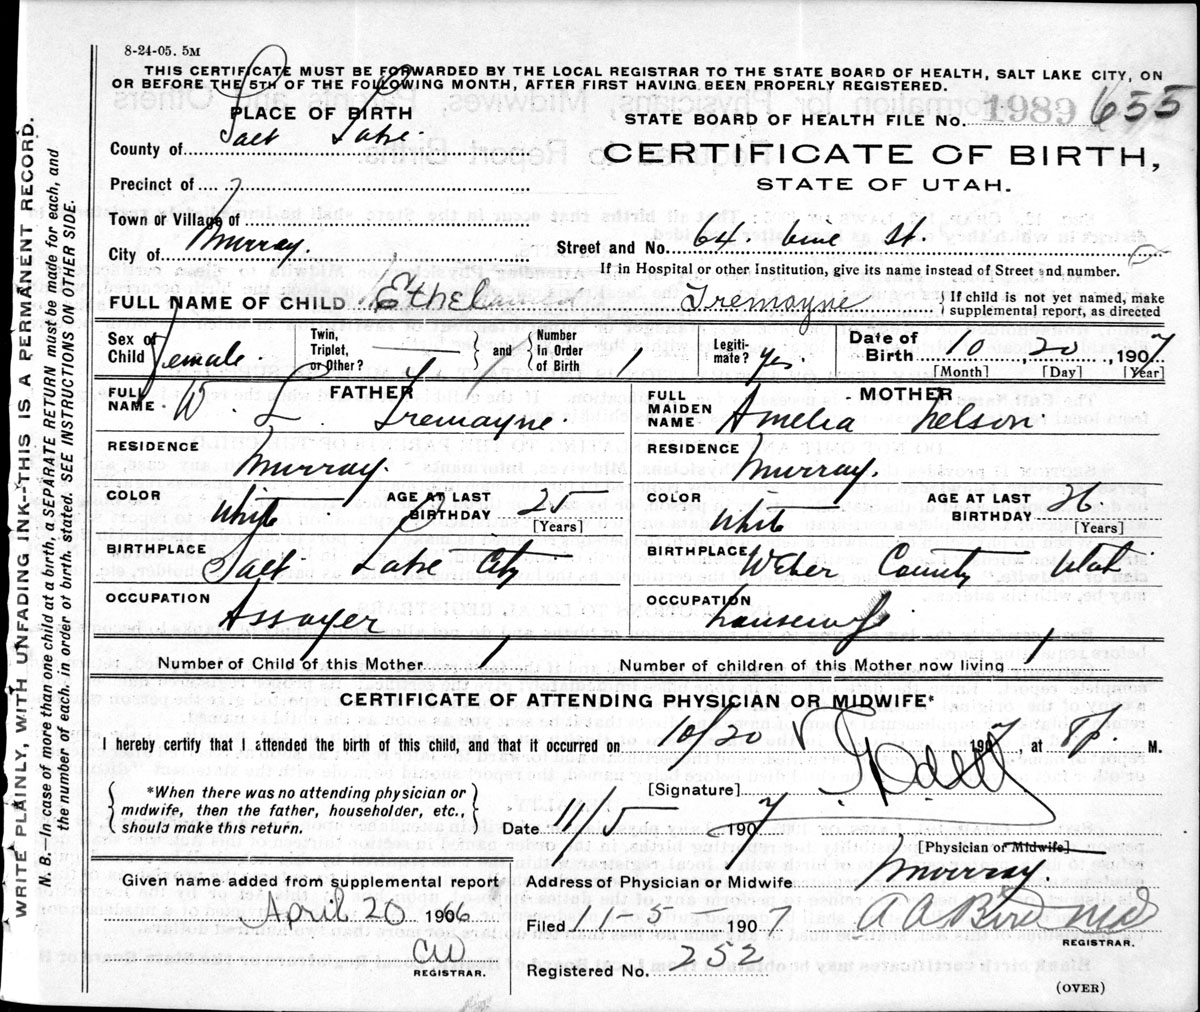 8-24-05. 5M
THIS CERTIFICATE MUST BE FORWARDED BY THE LOCAL REGISTRAR TO THE STATE BOARD OF HEALTH, SALT LAKE CITY, ON
OR BEFORE THE 5TH OF THE FOLLOWING MONTH, AFTER FIRST HAVING BEEN PROPERLY REGISTERED.
PLACE OF BIRTH
STATE BOARD OF HEALTH FILE No. 1989 655
County of Salt Lake.
CERTIFICATE OF BIRTH,
STATE OF UTAH.
Precinct of 2
Town or Village of
City of Murray.
Street and No. 64. St.
If in Hospital or other Institution, give its name instead of Street and number.
FULL NAME OF CHILD Ethel Tremayne } If child is not yet named, make supplemental report, as directed
Sex of Child Female. Twin, Triplet, or Other? } and { Number in Order of Birth 1 Legitimate? yes. Date of Birth 10 20, 1907
[Month] [Day] [Year]
FATHER
FULL NAME W. L. Tremayne.
MOTHER
FULL MAIDEN NAME Amelia Nelson
RESIDENCE Murray.
RESIDENCE Murray.
COLOR White AGE AT LAST BIRTHDAY 25 [Years]
COLOR White AGE AT LAST BIRTHDAY 26 [Years]
BIRTHPLACE Salt Lake City
BIRTHPLACE Weber County Utah
OCCUPATION Assayer
OCCUPATION housewife
Number of Child of this Mother 1
Number of children of this Mother now living 1
CERTIFICATE OF ATTENDING PHYSICIAN OR MIDWIFE*
I hereby certify that I attended the birth of this child, and that it occurred on 10/20 1907, at 8 p. M.
{ *When there was no attending physician or midwife, then the father, householder, etc., should make this return. }
[Signature]
Date 11/5 1907
[Physician or Midwife]
Given name added from supplemental report
April 20 1966
CW
REGISTRAR.
Address of Physician or Midwife Murray.
Filed 11-5- 1907
REGISTRAR.
Registered No. 252
(OVER)
WRITE PLAINLY, WITH UNFADING INK--THIS IS A PERMANENT RECORD.
N. B.--In case of more than one child at a birth, a SEPARATE RETURN must be made for each, and
the number of each, in order of birth, stated. SEE INSTRUCTIONS ON OTHER SIDE.